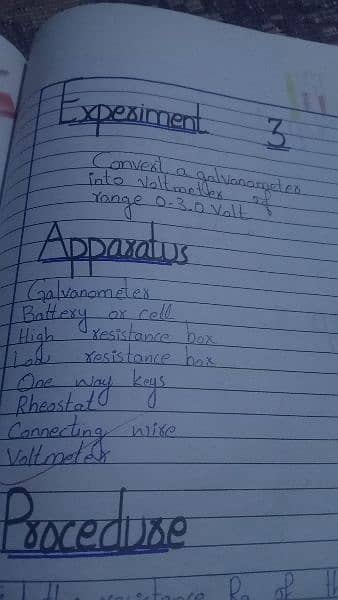 Experiment 3
Convert a galvanometer
into Voltmeter of
range 0-3.0 Volt
Apparatus
Galvanometer
Battery or cell
High resistance box
Low resistance box
One way keys
Rheostat
Connecting wire
Voltmeter
Procedure
resistance Rg of th